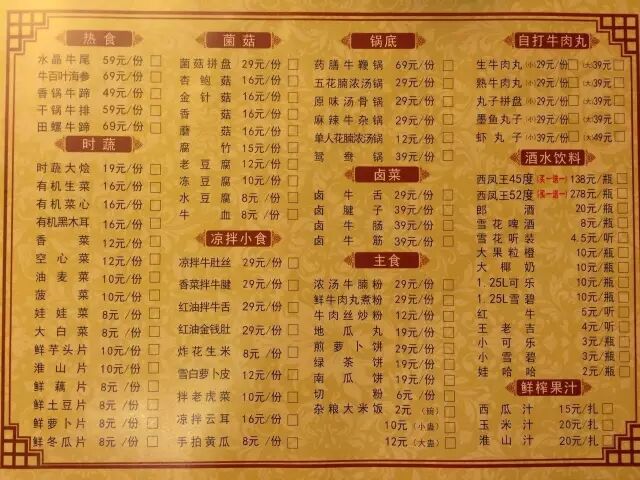 热食
水晶牛尾 59元/份
牛百叶海参 69元/份
香锅牛蹄 49元/份
干锅牛排 59元/份
田螺牛蹄 69元/份
时蔬
时蔬大烩 19元/份
有机生菜 16元/份
有机菜心 16元/份
有机黑木耳 16元/份
香菜 12元/份
空心菜 12元/份
油麦菜 10元/份
菠菜 10元/份
娃娃菜 8元/份
大白菜 8元/份
鲜芋头片 10元/份
淮山片 10元/份
鲜藕片 8元/份
鲜土豆片 8元/份
鲜萝卜片 8元/份
鲜冬瓜片 8元/份
菌菇
菌菇拼盘 29元/份
杏鲍菇 16元/份
金针菇 16元/份
香菇 16元/份
蘑菇 16元/份
腐竹 15元/份
老豆腐 12元/份
冻豆腐 10元/份
水豆腐 8元/份
牛血 8元/份
凉拌小食
凉拌牛肚丝 29元/份
香菜拌牛腱 29元/份
红油拌牛舌 29元/份
红油金钱肚 29元/份
炸花生米 8元/份
雪白萝卜皮 12元/份
拌老虎菜 10元/份
凉拌云耳 16元/份
手拍黄瓜 8元/份
锅底
药膳牛鞭锅 69元/份
五花腩浓汤锅 29元/份
原味汤骨锅 29元/份
麻辣牛杂锅 29元/份
单人花腩浓汤锅 12元/份
鸳鸯锅 39元/份
卤菜
卤牛舌 29元/份
卤腱子 39元/份
卤牛肠 39元/份
卤牛筋 39元/份
主食
浓汤牛腩粉 29元/份
鲜牛肉丸煮粉 29元/份
牛肉丝炒粉 12元/份
地瓜丸 19元/份
煎萝卜饼 29元/份
绿茶饼 19元/份
南瓜饼 19元/份
切粉 6元/份
杂粮大米饭 2元(碗)
10元(小盅)
12元(大盅)
自打牛肉丸
生牛肉丸(小)29元/份 (大)39元
熟牛肉丸(小)29元/份 (大)39元
丸子拼盘(小)29元/份 (大)39元
墨鱼丸子(小)29元/份 (大)39元
虾丸子(小)39元/份 (大)49元
酒水饮料
西凤王45度(买一送一) 138元/瓶
西凤王52度(买一送一) 278元/瓶
郎酒 20元/瓶
雪花啤酒 8元/瓶
雪花听装 4.5元/听
大果粒橙 10元/瓶
大椰奶 10元/瓶
1.25L可乐 10元/瓶
1.25L雪碧 10元/瓶
红牛 5元/听
王老吉 4元/听
小可乐 3元/瓶
小雪碧 3元/瓶
娃哈哈 2元/瓶
鲜榨果汁
西瓜汁 15元/扎
玉米汁 20元/扎
淮山汁 20元/扎